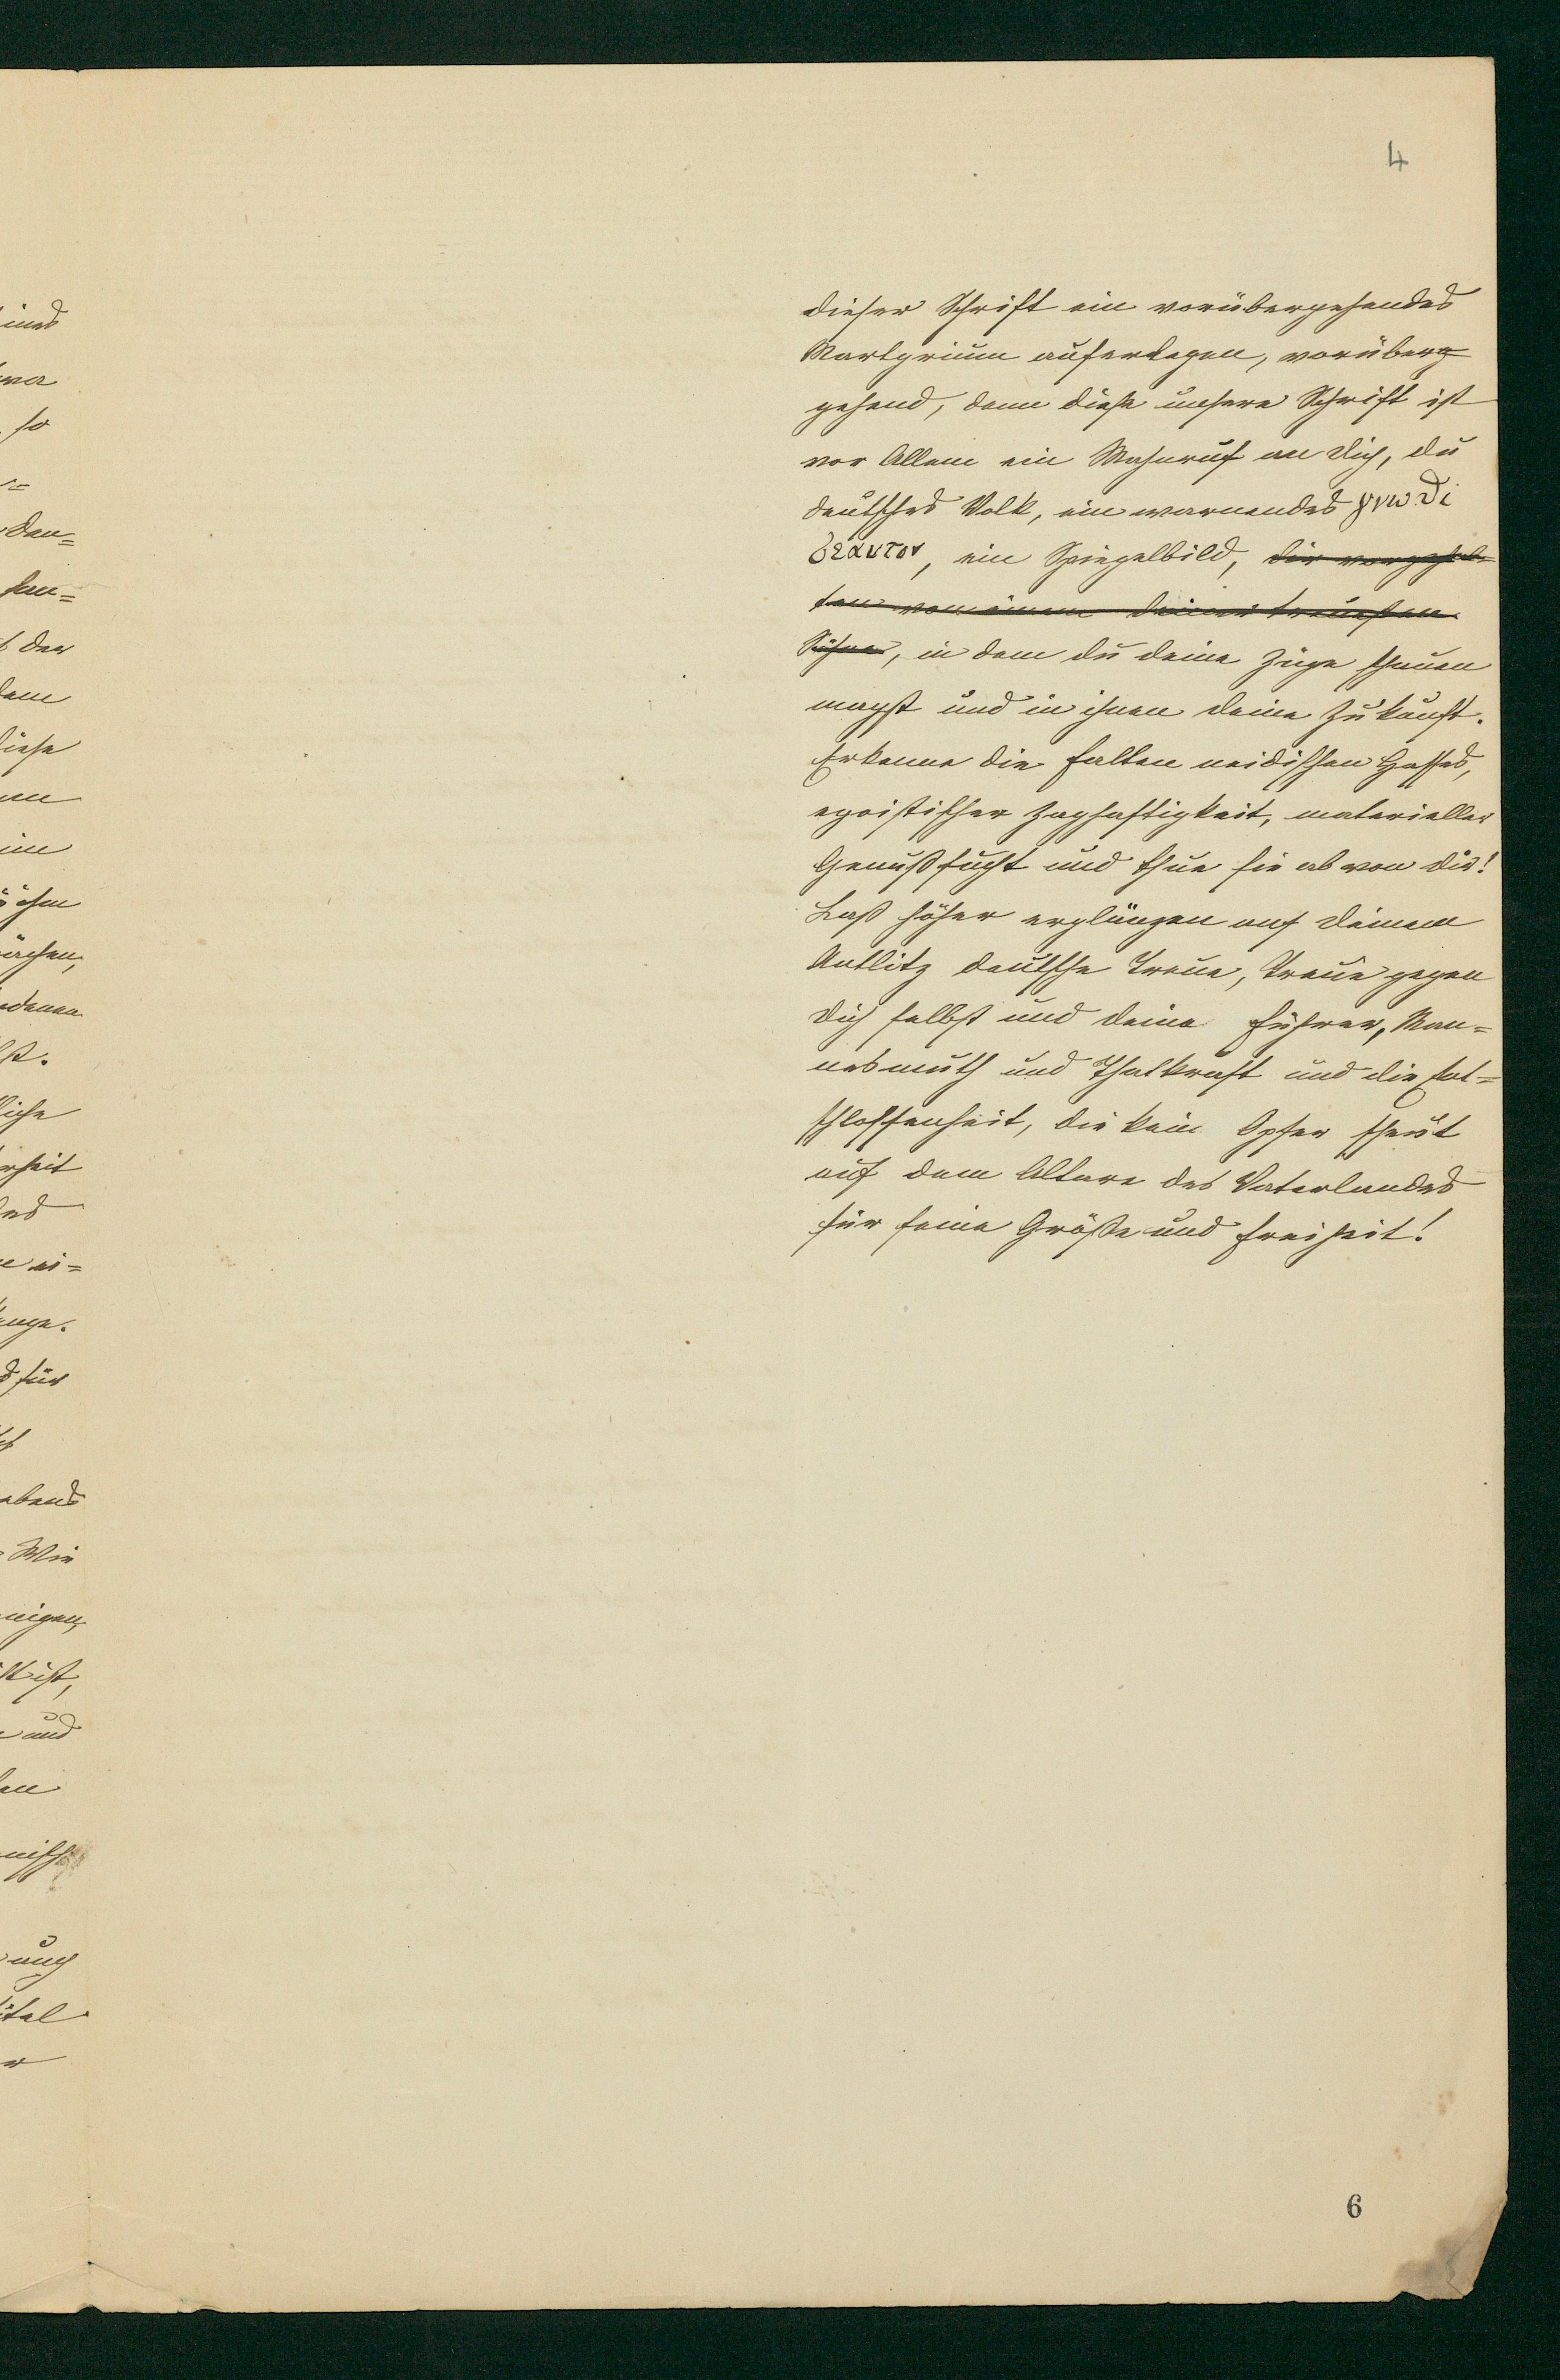 4
dieser Schrift ein vorübergehendes
Martyrium auferlegen, vorüber=
gehend, denn diese unsere Schrift ist
vor Allem ein Mahnruf an Dich, du
deutsches Volk, ein warnendes γνωϑι
σεαυτον, ein Spiegelbild, dir vorgehal=
ten von einem deiner treuesten
Söhne, in dem du deine Züge schauen
magst und in ihnen deine Zukunft.
Erkenne die Falten neidischen Hasses,
egoistischer Zaghaftigkeit, materieller
Genußsucht und thue sie ab von dir!
Laß höher erglänzen auf deinem
Antlitz deutsche Treue, Treue gegen
dich selbst und deine Führer, Man=
nesmuth und Thatkraft und die Ent=
schlossenheit, die kein Opfer scheut
auf dem Altare des Vaterlandes
für seine Größe und Freiheit!
6
ines
so
den=
der
dem
diese
denen
rheit
für
Wie
ist,
und